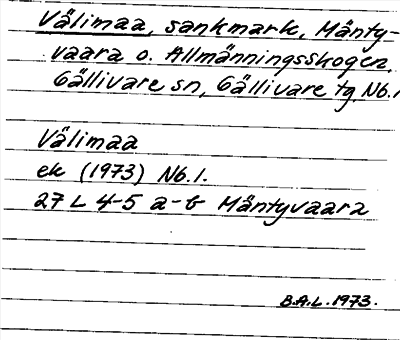 Välimaa, sankmark, Mänty-
vaara o. Allmänningsskogen,
Gällivare sn, Gällivare tg, Nb.1
Välimaa
ek (1973) Nb.1.
27 L 4-5 a-b Mäntyvaara
B.A.L. 1973.